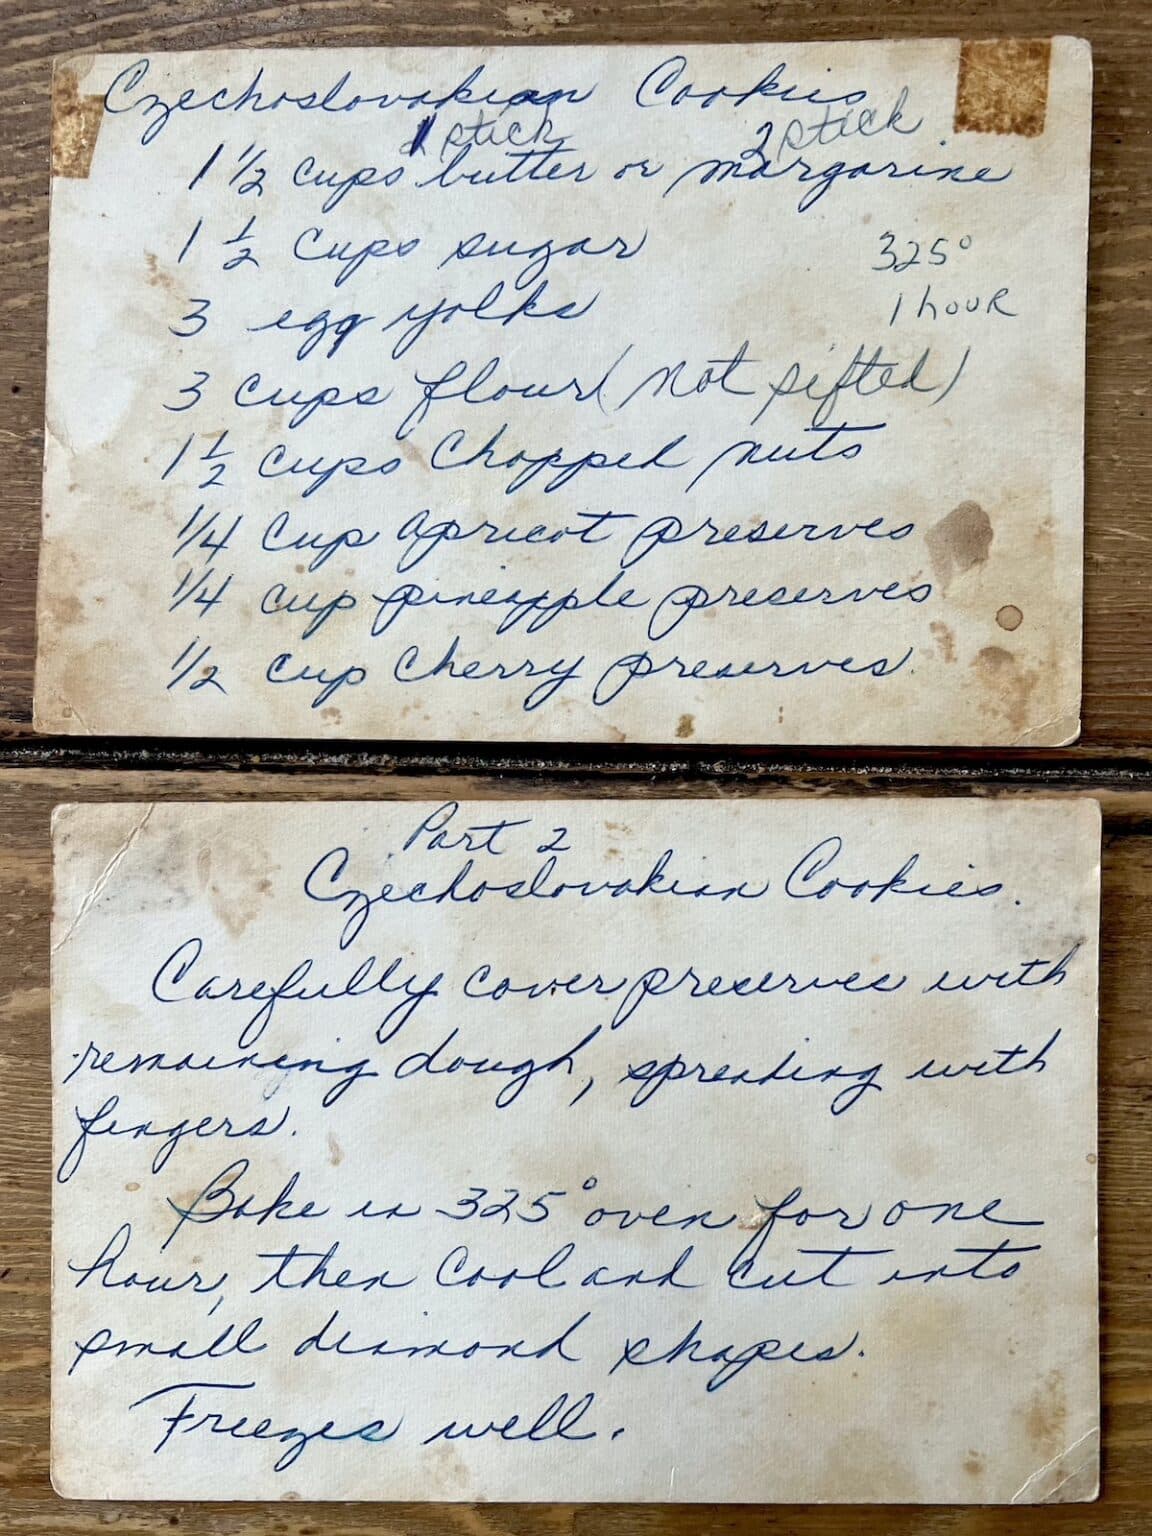 Czechoslovakian Cookies
1 stick 2 stick
1 1/2 cups butter or margarine
1 1/2 cups sugar
325°
3 egg yolks
1 hour
3 cups flour (not sifted)
1 1/2 cups chopped nuts
1/4 cup apricot preserves
1/4 cup pineapple preserves
1/2 cup cherry preserves.
Part 2
Czechoslovakian Cookies.
Carefully cover preserves with
remaining dough, spreading with
fingers.
Bake in 325° oven for one
hour, then cool and cut into
small diamond shapes.
Freezes well.